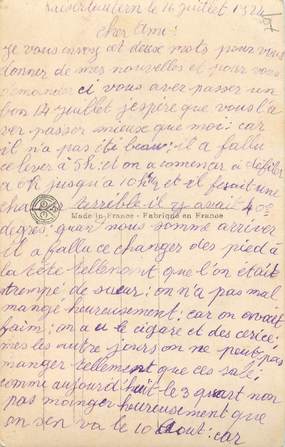 Kaiserslautern le 16 juillet 1924
cher Ami:
Je vous envoy ce deux mots pour vous
donner de mes nouvelles et pour vous
demander si vous aver passer un
bon 14 juillet j'espère que vous l'a
ver passer mieux que moi: car
il n'a pas été beau; il a fallu
ce lever à 5h: et on a commencer à défiler
a 8h jusqu'à 10h½ et il fesait une
cha terrible il y avait 40°
degrés, quan nous somme arriver
Made in France - Fabriqué en France
il a fallu ce changer des pied à
la tête tellement que l'on était
trempé de sueur: on n'a pas mal
mangé heureusement; car on avait
faim; on a u le cigare et des cerice,
mes les autre jours on ne peut pas
manger tellement que ces salé
comme aujourd'huit le 3 quart non
pas moinger heureusement que
on s'en va le 10 Aout: car